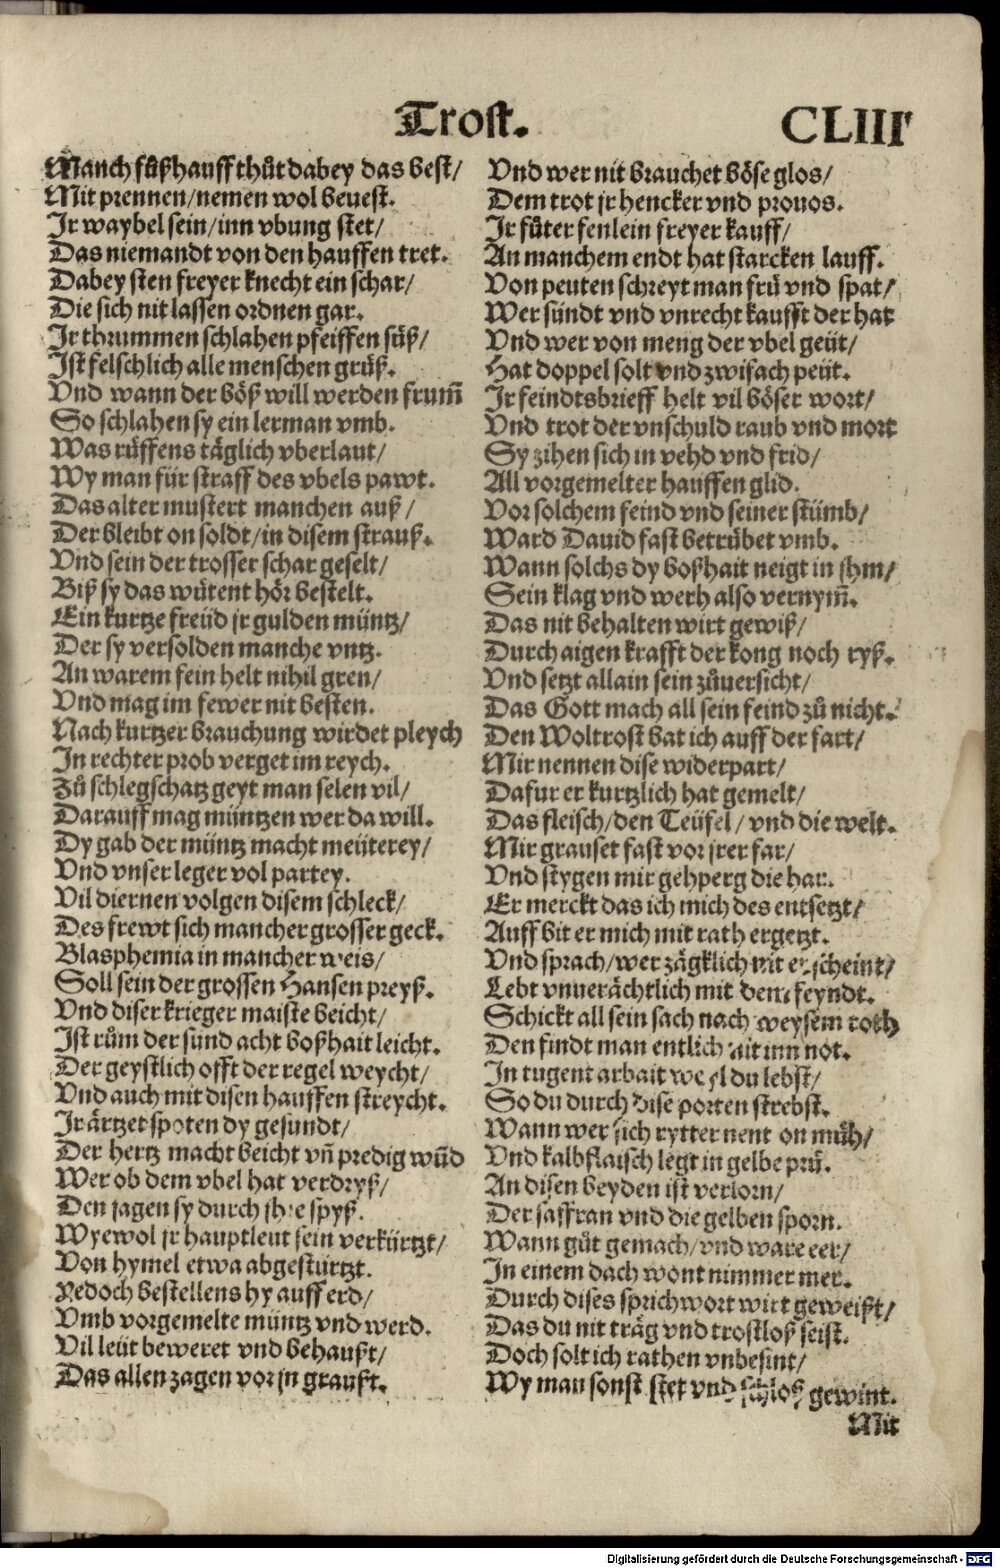 Trost.
CLIII
Manch fůßhauff thůt dabey das best/
Mit prennen/nemen wol bevest.
Jr waybel sein/inn vbung stet/
Das niemandt von den hauffen tret.
Dabey sten freyer knecht ein schar/
Die sich nit lassen ordnen gar.
Jr thrummen schlahen pfeiffen süß/
Jst felschlich alle menschen grüß.
Vnd wann der böß will werden frum̃
So schlahen sy ein lerman vmb.
Was rüffens täglich vberlaut/
Wy man für straff des vbels pawt.
Das alter mustert manchen auß/
Der bleibt on soldt/in disem strauß.
Vnd sein der trosser schar geselt/
Biß sy das wütent hör bestelt.
Ein kurtze freüd jr gulden müntz/
Der sy versolden manche vntz.
An warem fein helt nihil gren/
Vnd mag im fewer nit besten.
Nach kurtzer brauchung wirdet pleych
Jn rechter prob verget im reych.
Zů schlegschatz geyt man selen vil/
Darauff mag müntzen wer da will.
Dy gab der müntz macht meüterey/
Vnd vnser leger vol partey.
Vil diernen volgen disem schleck/
Des frewt sich mancher grosser geck.
Blasphemia in mancher weis/
Soll sein der grossen Hansen preyß.
Vnd diser krieger maiste beicht/
Jst rům der sünd acht boßhait leicht.
Der geystlich offt der regel weycht/
Vnd auch mit disen hauffen streycht.
Jr ärtzet spoten dy gesundt/
Der hertz macht beicht vñ predig wũd
Wer ob dem vbel hat verdryß/
Den jagen sy durch jhre spyß.
Wyewol jr hauptleut sein verkürtzt/
Von hymel etwa abgestürtzt.
Yedoch bestellens hy auff erd/
Vmb vorgemelte müntz vnd werd.
Vil leüt beweret vnd behaußt/
Das allen zagen vor jn graußt.
Vnd wer nit brauchet böse glos/
Dem trot jr hencker vnd provos.
Jr fůter fenlein freyer kauff/
An manchem endt hat starcken lauff.
Von peuten schreyt man frü vnd spat/
Wer sündt vnd vnrecht kaufft der hat
Vnd wer von meng der vbel geüt/
Hat doppel solt vnd zwifach peüt.
Jr feindtsbrieff helt vil böser wort/
Vnd trot der vnschuld raub vnd mort
Sy zihen sich in vehd vnd frid/
All vorgemelter hauffen glid.
Vor solchem feind vnd seiner stümb/
Ward David fast betrübet vmb.
Wann solchs dy boßhait neigt in jhm/
Sein klag vnd werh also vernym̃.
Das nit behalten wirt gewiß/
Durch aigen krafft der kong noch ryß.
Vnd setzt allain sein zůversicht/
Das Gott mach all sein feind zů nicht.
Den Woltrost bat ich auff der fart/
Mir nennen dise widerpart/
Dafur er kurtzlich hat gemelt/
Das fleisch/den Teüfel/vnd die welt.
Mir grauset fast vor jrer far/
Vnd stygen mir gehperg die har.
Er merckt das ich mich des entsetzt/
Auff bit er mich mit rath ergetzt.
Vnd sprach/wer zägklich nit erscheint/
Lebt vnverächtlich mit dem feyndt.
Schickt all sein sach nach weysem roth
Den findt man entlich nit inn not.
Jn tugent arbait weyl du lebst/
So du durch dise porten strebst.
Wann wer sich rytter nent on müh/
Vnd kalbflaisch legt in gelbe prü.
An disen beyden ist verlorn/
Der saffran vnd die gelben sporn.
Wann gůt gemach/vnd ware eer/
Jn einem dach wont nimmer mer.
Durch dises sprichwort wirt geweißt/
Das du nit träg vnd trostloß seist.
Doch solt ich rathen vnbesint/
Wy man sonst stet vnd schloß gewint.
Mit
Digitalisierung gefördert durch die Deutsche Forschungsgemeinschaft - DFG